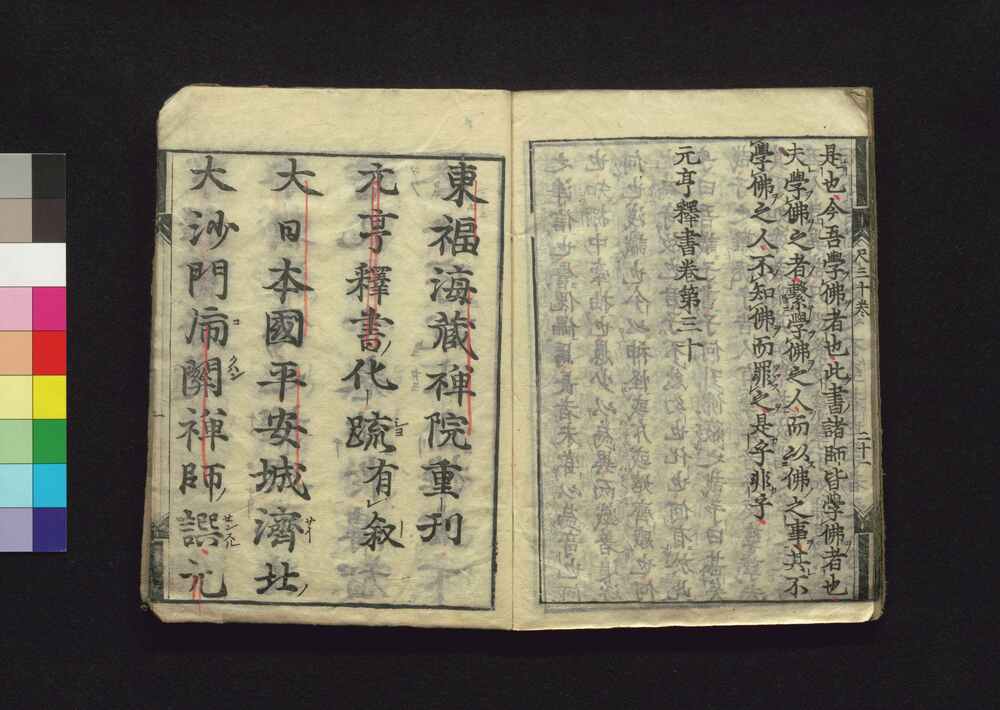 是也今吾學佛者也此書諸師皆學佛者也
夫學佛之者繫學佛之人而以佛之事其不
學佛之人不知佛而罪之是乎非乎
元亨釋書卷第三十
尺三十卷
二十一
東福海藏禪院重刊
元亨釋書化疏有叙
大日本國平安城濟北
大沙門師闗禪師譔元